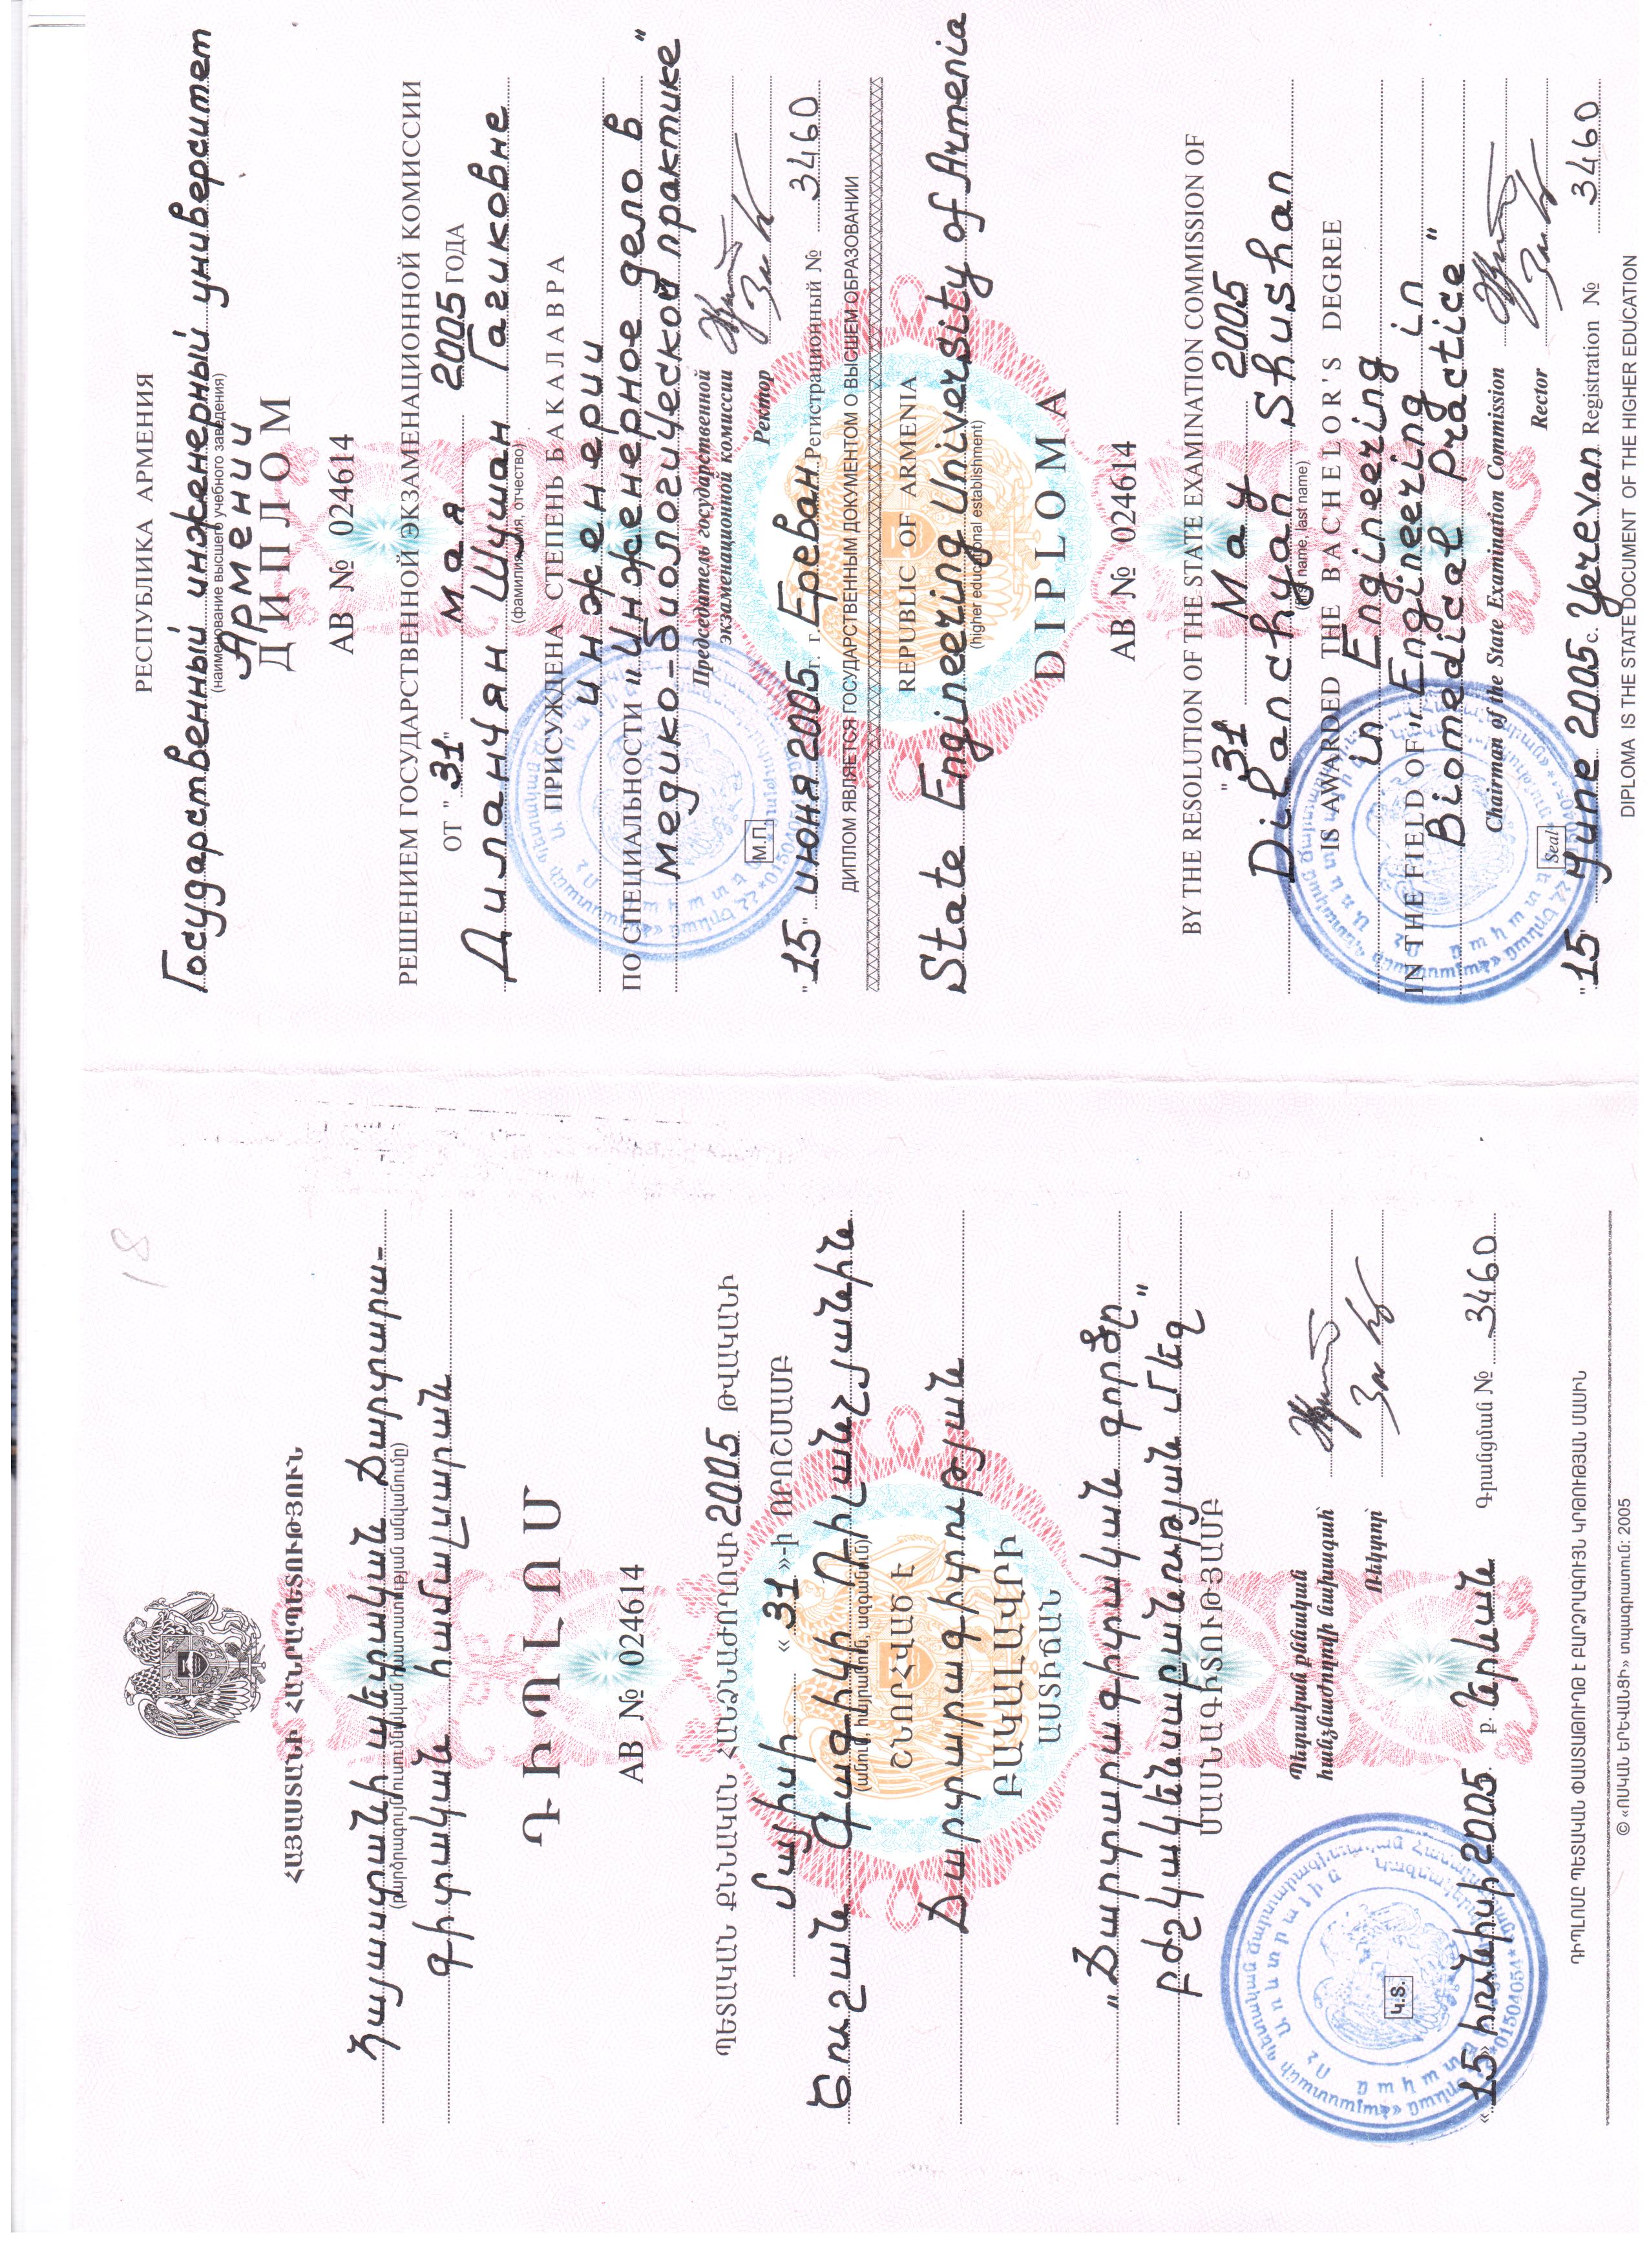 18
ՀԱՅԱՍՏԱՆԻ ՀԱՆՐԱՊԵՏՈՒԹՅՈՒՆ
Հայաստանի պետական Ճարտարա-
(բարձրագույն ուսումնական հաստատության անվանումը)
գիտական համալսարան
ԴԻՊԼՈՄ
AB № 024614
ՊԵՏԱԿԱՆ ՔՆՆԱԿԱՆ ՀԱՆՁՆԱԺՈՂՈՎԻ 2005 ԹՎԱԿԱՆԻ
մայիսի «31»-ի ՈՐՈՇՄԱՄԲ
Շուշան Գագիկի Դիլանչյանին
(անուն, հայրանուն, ազգանուն)
ՇՆՈՐՀՎԱԾ Է
Ճարտարագիտության
ԲԱԿԱԼԱՎՐԻ
ԱՍՏԻՃԱՆ
„Ճարտարագիտական գործը
բժշկակենսաբանության մեջ"
ՄԱՍՆԱԳԻՏՈՒԹՅԱՄԲ
Պետական քննական
հանձնաժողովի նախագահ՝
Ռեկտոր՝
Կ.Տ.
«15» հունիսի 2005. ք. Երևան Գրանցման № 3460
*01504054*
ԴԻՊԼՈՄԸ ՊԵՏԱԿԱՆ ՓԱՍՏԱԹՈՒՂԹ Է ԲԱՐՁՐԱԳՈՒՅՆ ԿՐԹՈՒԹՅԱՆ ՄԱՍԻՆ
© «ՈՍԿԱՆ ԵՐԵՎԱՆՑԻ» տպագրատուն: 2005
РЕСПУБЛИКА АРМЕНИЯ
Государственный инженерный университет
(наименование высшего учебного заведения)
Армении
ДИПЛОМ
АВ № 024614
РЕШЕНИЕМ ГОСУДАРСТВЕННОЙ ЭКЗАМЕНАЦИОННОЙ КОМИССИИ
ОТ "31" мая 2005 ГОДА
Диланчян Шушан Гагиковне
(фамилия, имя, отчество)
ПРИСУЖДЕНА СТЕПЕНЬ БАКАЛАВРА
инженерии
ПО СПЕЦИАЛЬНОСТИ „Инженерное дело в
медико-биологической практике"
Председатель государственной
экзаменационной комиссии
М.П.
Ректор
"15" июня 2005 г. г. Ереван Регистрационный № 3460
ДИПЛОМ ЯВЛЯЕТСЯ ГОСУДАРСТВЕННЫМ ДОКУМЕНТОМ О ВЫСШЕМ ОБРАЗОВАНИИ
REPUBLIC OF ARMENIA
State Engineering University of Armenia
(higher educational establishment)
DIPLOMA
AB № 024614
BY THE RESOLUTION OF THE STATE EXAMINATION COMMISSION OF
"31" May 2005
Dilanchyan Shushan
(first name, last name)
IS AWARDED THE BACHELOR'S DEGREE
in Engineering
IN THE FIELD OF „Engineering in
Biomedical Practice"
Chairman of the State Examination Commission
Rector
Seal
"15" June 2005 c. Yerevan Registration № 3460
DIPLOMA IS THE STATE DOCUMENT OF THE HIGHER EDUCATION